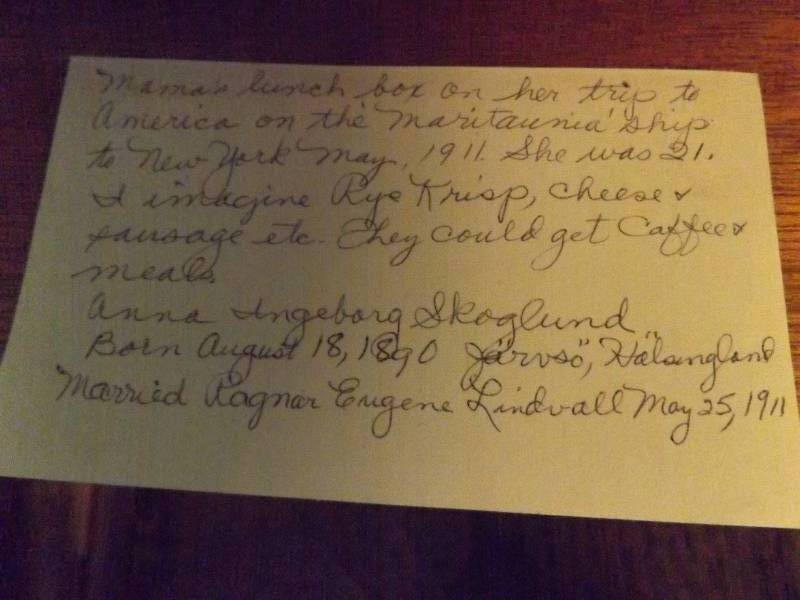 Mama's lunch box on her trip to
America on the "Maritaunia" ship
to New York May, 1911. She was 21.
I imagine Rye Krisp, cheese &
sausage etc. They could get Caffee &
meals.
Anna Ingeborg Skoglund
Born August 18, 1890 Järvsö, Hälsingland
Married Ragnar Eugene Lindvall May 25, 1911